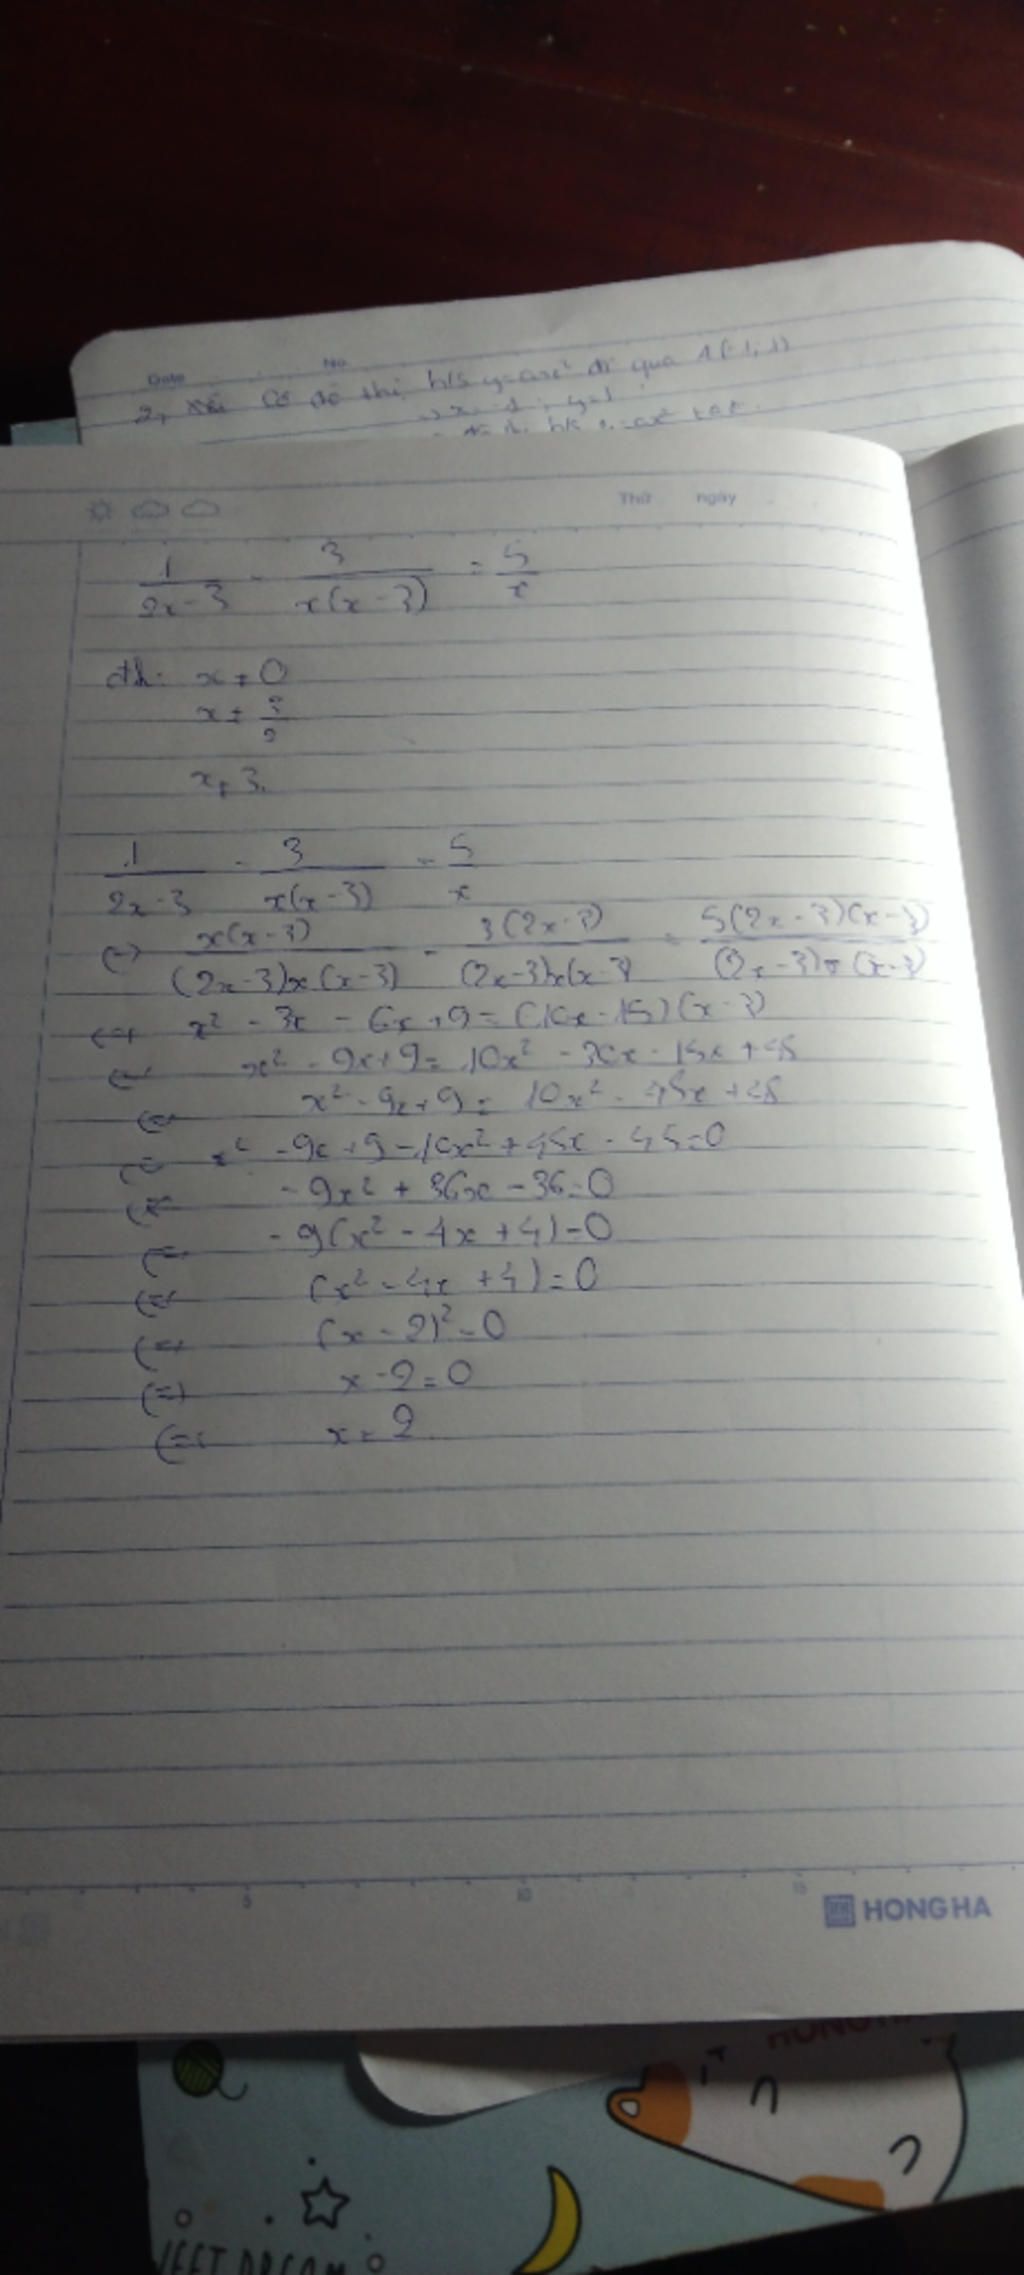 Date No
2, Đồ thị h/s y=ax² đi qua A(-1; 1)
=> x=-1; y=1
h/s y=ax²
Thứ ngày
1/(2x-3) - 3/(x(x-3)) = 5/x
đk: x ≠ 0
x ≠ 3/2
x ≠ 3.
1/(2x-3) - 3/(x(x-3)) = 5/x
(=) x(x-3)/((2x-3)x(x-3)) - 3(2x-3)/((2x-3)x(x-3)) = 5(2x-3)(x-3)/((2x-3)x(x-3))
(=) x² - 3x - 6x + 9 = (10x-15)(x-3)
(=) x² - 9x + 9 = 10x² - 30x - 15x + 45
(=) x² - 9x + 9 = 10x² - 45x + 45
(=) x² - 9x + 9 - 10x² + 45x - 45 = 0
(=) -9x² + 36x - 36 = 0
(=) -9(x² - 4x + 4) = 0
(=) (x² - 4x + 4) = 0
(=) (x - 2)² = 0
(=) x - 2 = 0
(=) x = 2
5 10 15
HONG HA
HONG HA
SWEET DREAM